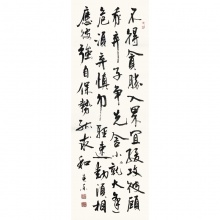 不得貪勝入界宜緩攻彼顧
我弃子争先舍小就大逢
危須弃慎勿輕速動須相
應彼強自保勢孤取和